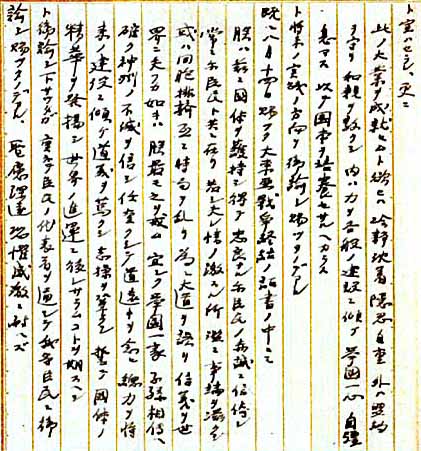 ト宣ハセラレ、更ニ
此ノ大業ヲ成就セムト欲セハ冷静沈着隠忍自重外ハ盟約
ヲ守リ和親ヲ敦クシ内ハ力ヲ各般ノ建設ニ傾ケ挙国一心自彊
息マス以テ国本ヲ培養セサルヘカラス
ト将来ノ実践ノ方向ヲ御諭シ賜ツタノデアル
既ニ八月十四日賜フタ大東亜戦争終結ノ詔書ノ中ニモ
朕ハ茲ニ国体ヲ護持シ得テ忠良ナル爾臣民ノ赤誠ニ信倚シ
常ニ爾臣民ト共ニ在リ若シ夫レ情ノ激スル所濫ニ事端ヲ滋クシ
或ハ同胞排擠互ニ時局ヲ乱リ為ニ大道ヲ誤リ信義ヲ世
界ニ失フカ如キハ朕最モ之ヲ戒ム宜シク挙国一家子孫相伝ヘ
確ク神州ノ不滅ヲ信シ任重クシテ道遠キヲ念ヒ総力ヲ将
来ノ建設ニ傾ケ道義ヲ篤クシ志操ヲ鞏クシ誓テ国体ノ
精華ヲ発揚シ世界ノ進運ニ後レサラムコトヲ期スヘシ
ト御諭シ下サ 臣民ノ代表者ヲ通シテ 臣民ニ御
諭シ賜ツタノデアル、聖慮深遠恐懼感激ニ耐ヘズ